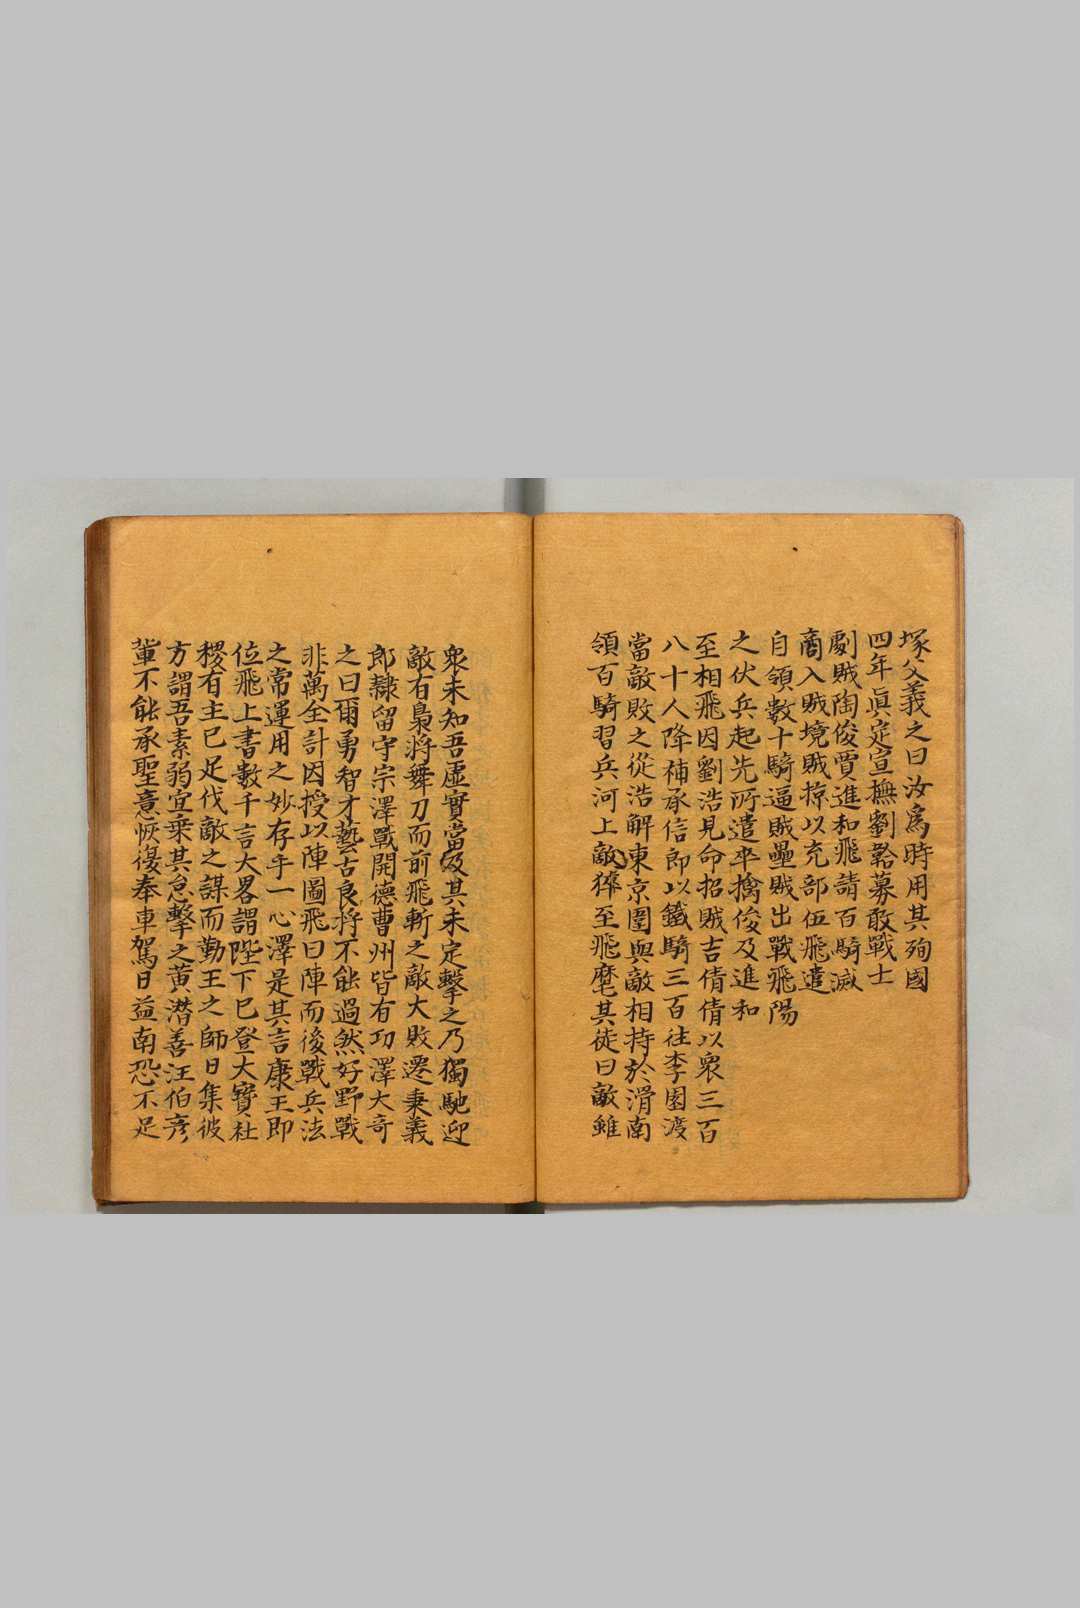 塚父義之曰汝爲時用其殉國
四年眞定宣撫劉韐募敢戰士
劇賊陶俊賈進和飛請百騎滅
商入賊境賊掠以充部伍飛遣
自領數十騎逼賊壘賊出戰飛陽
之伏兵起先所遣卒擒俊及進和
至相飛因劉浩見命招賊吉倩倩以衆三百
八十人降補承信郎以鐵騎三百往李園渡
當敵敗之從浩解東京圍與敵相持於滑南
領百騎習兵河上敵猝至飛麾其徒曰敵雖
衆未知吾虛實當及其未定擊之乃獨馳迎
敵有梟將舞刀而前飛斬之敵大敗遷秉義
郎隸留守宗澤戰開德曹州皆有功澤大奇
之曰爾勇智才藝古良將不能過然好野戰
非萬全計因授以陣圖飛曰陣而後戰兵法
之常運用之妙存乎一心澤是其言康王即
位飛上書數千言大畧謂陛下已登大寶社
稷有主已足伐敵之謀而勤王之師日集彼
方謂吾素弱宜乗其怠擊之黄潛善汪伯彦
軰不能承聖意恢復奉車駕日益南恐不足